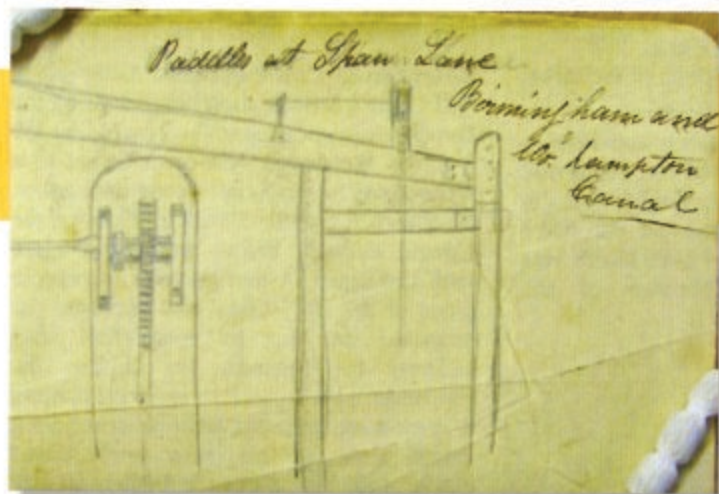 Paddles at Spon Lane
Birmingham and
Wo. hampton
Canal